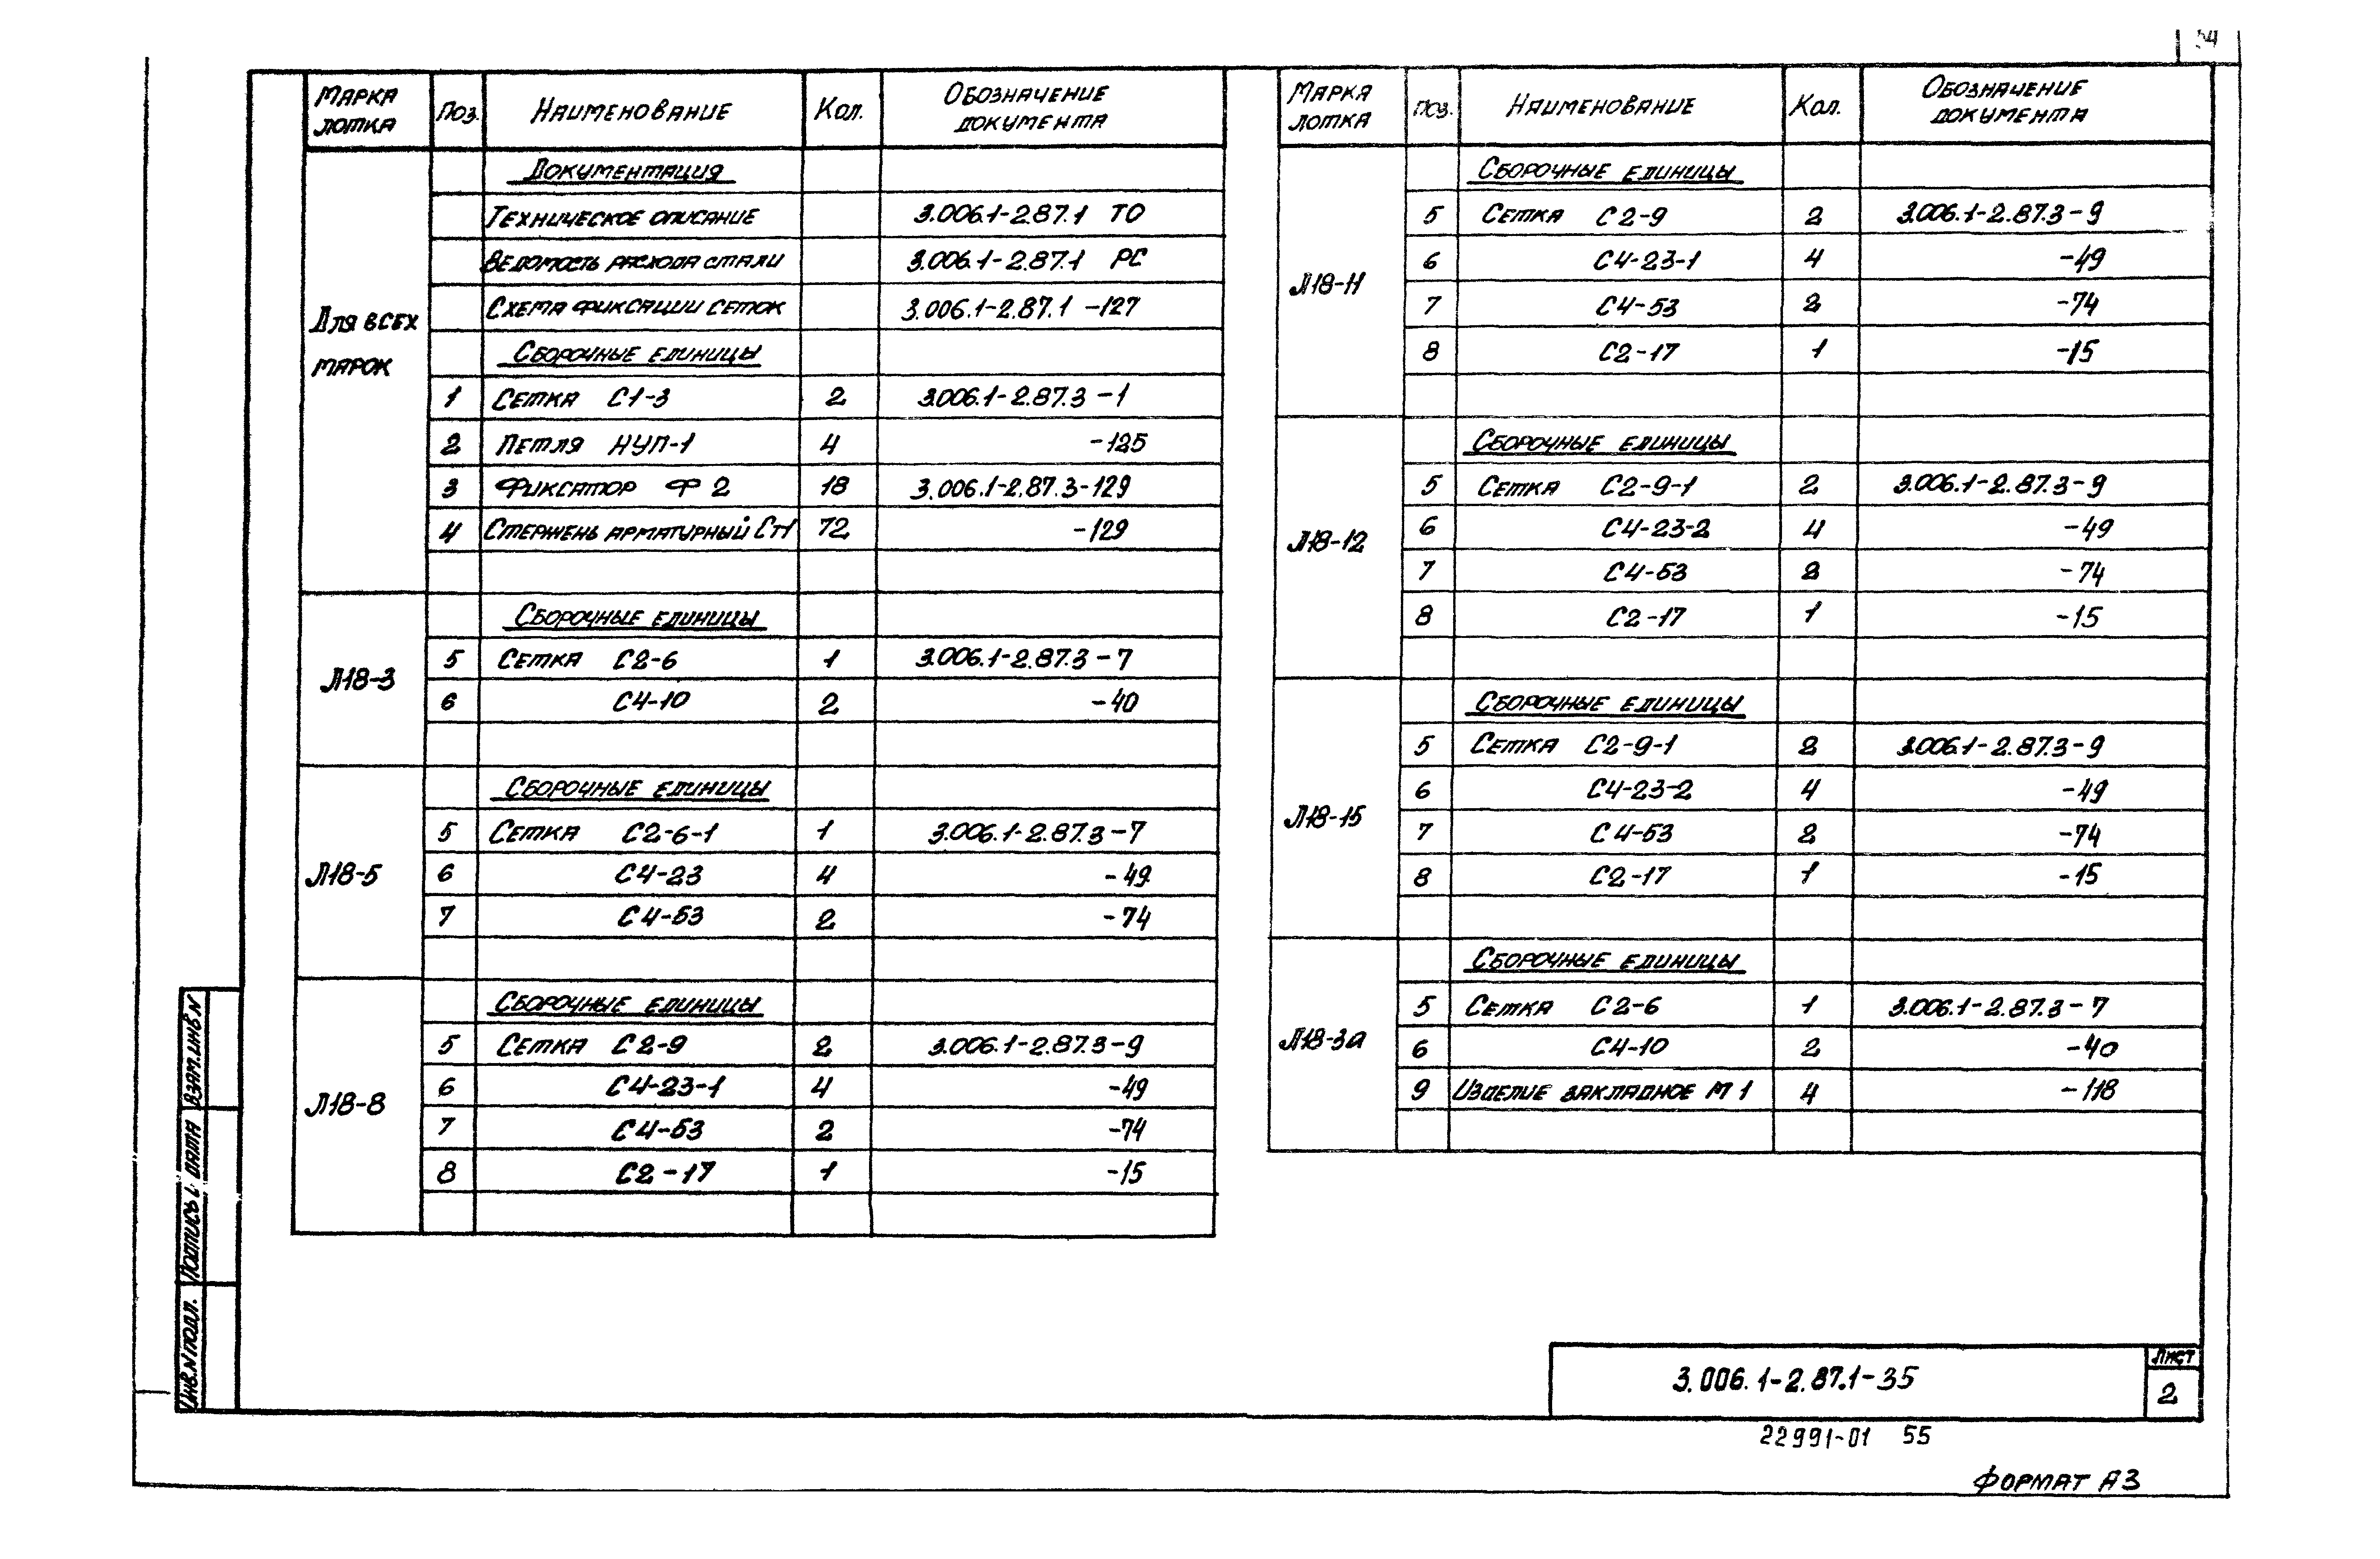 Марка лотка | Поз. | Наименование | Кол. | Обозначение документа
Для всех марок
Документация
Техническое описание | 3.006.1-2.87.1 ТО
Ведомость расхода стали | 3.006.1-2.87.1 РС
Схема фиксации сеток | 3.006.1-2.87.1 -127
Сборочные единицы
1 | Сетка С1-3 | 2 | 3.006.1-2.87.3 -1
2 | Петля НУП-1 | 4 | -125
3 | Фиксатор Ф 2 | 18 | 3.006.1-2.87.3-129
4 | Стержень арматурный Ст1 | 72 | -129
Л18-3
Сборочные единицы
5 | Сетка С2-6 | 1 | 3.006.1-2.87.3 -7
6 | С4-10 | 2 | -40
Л18-5
Сборочные единицы
5 | Сетка С2-6-1 | 1 | 3.006.1-2.87.3 -7
6 | С4-23 | 4 | -49
7 | С4-53 | 2 | -74
Л18-8
Сборочные единицы
5 | Сетка С2-9 | 2 | 3.006.1-2.87.3 -9
6 | С4-23-1 | 4 | -49
7 | С4-53 | 2 | -74
8 | С2-17 | 1 | -15
Марка лотка | Поз. | Наименование | Кол. | Обозначение документа
Л18-11
Сборочные единицы
5 | Сетка С2-9 | 2 | 3.006.1-2.87.3 -9
6 | С4-23-1 | 4 | -49
7 | С4-53 | 2 | -74
8 | С2-17 | 1 | -15
Л18-12
Сборочные единицы
5 | Сетка С2-9-1 | 2 | 3.006.1-2.87.3 -9
6 | С4-23-2 | 4 | -49
7 | С4-53 | 2 | -74
8 | С2-17 | 1 | -15
Л18-15
Сборочные единицы
5 | Сетка С2-9-1 | 2 | 3.006.1-2.87.3 -9
6 | С4-23-2 | 4 | -49
7 | С4-53 | 2 | -74
8 | С2-17 | 1 | -15
Л18-3а
Сборочные единицы
5 | Сетка С2-6 | 1 | 3.006.1-2.87.3 -7
6 | С4-10 | 2 | -40
9 | Изделие закладное М 1 | 4 | -118
Взам.инв.N
Подпись и дата
Инв.N подл.
3.006.1-2.87.1-35
Лист
2
22991-01 55
Формат А3